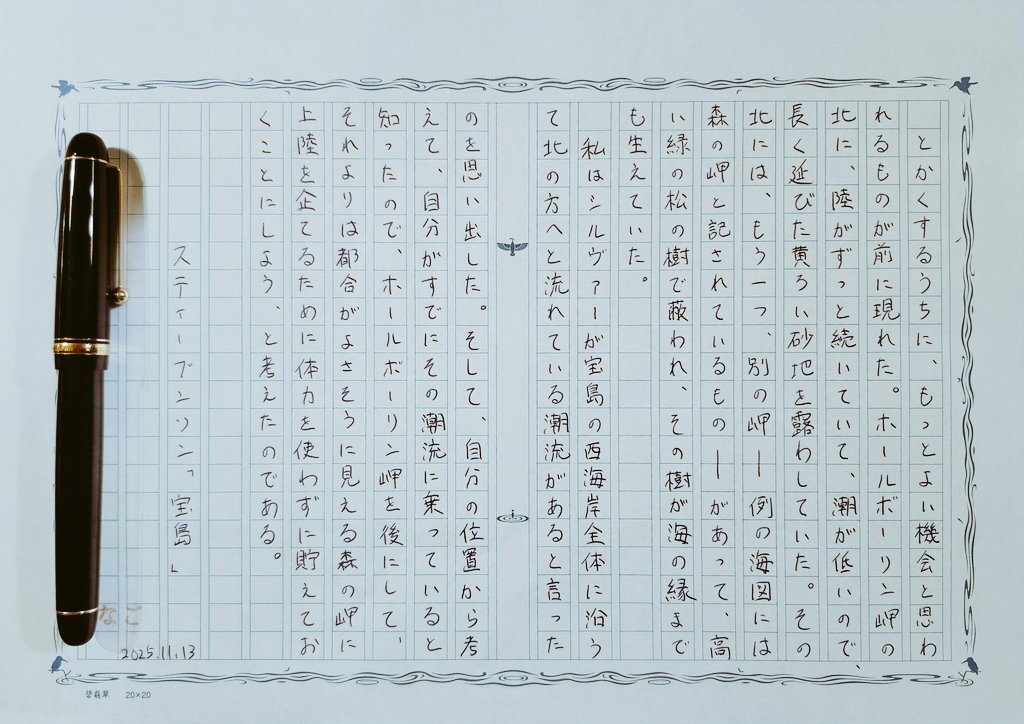 とかくするうちに、もっとよい機会と思わ
れるものが前に現れた。ホールボーリン岬の
北に、陸がずっと続いていて、潮が低いので、
長く延びた黄ろい砂地を露わしていた。その
北には、もう一つ、別の岬――例の海図には
森の岬と記されているもの――があって、高
い緑の松の樹で蔽われ、その樹が海の縁まで
も生えていた。
私はシルヴァーが宝島の西海岸全体に沿う
て北の方へと流れている潮流があると言った
のを思い出した。そして、自分の位置から考
えて、自分がすでにその潮流に乗っていると
知ったので、ホールボーリン岬を後にして、
それよりは都合がよさそうに見える森の岬に
上陸を企てるために体力を使わずに貯えてお
くことにしよう、と考えたのである。
スティーブンソン「宝島」
なご
2025.11.13
碧翡翠 20×20